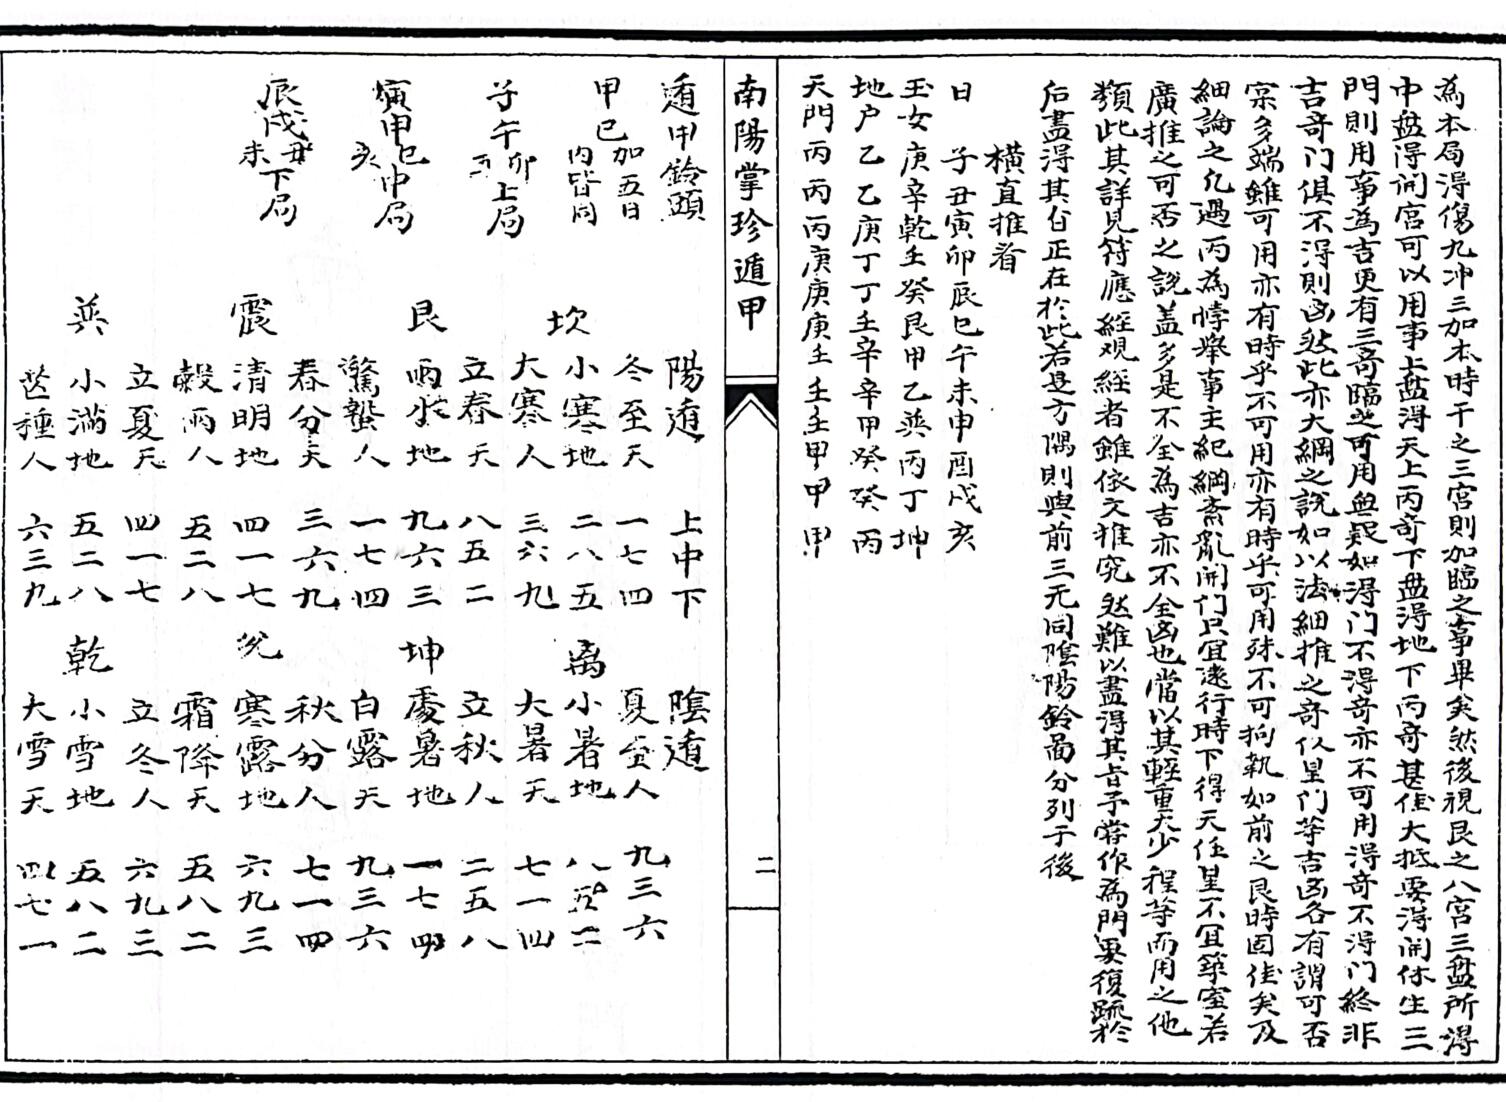 為本局得傷九冲三加本時干之三宮則加臨之事畢矣然後視艮之八宮三盘所得
中盘得開宮可以用事上盘得天上丙奇下盘得地下丙奇甚佳大抵要得開休生三
門則用事為吉更有三奇臨之可用無疑如得门不得奇亦不可用得奇不得门終非
吉奇门俱不得則凶然此亦大綱之説如以法細推之奇仪星门等吉凶各有謂可否
寀多端雖可用亦有時乎不可用亦有時乎可用殊不可拘執如前之艮時固佳矣及
細論之凡遇丙為悖舉事主紀綱紊亂開门只宜逺行時下得天任星不宜築室若
廣推之可否之説盖多是不全為吉亦不全凶也當以其輕重大少程等而用之他
類此其詳見符應經观經者雖依文推究然難以盡得其旨予嘗作為門要復疏於
后盡得其旨正在於此若是方隅則與前三元同陰陽鈴啚分列于後
橫直推看
日 子丑寅卯辰巳午未申酉戌亥
玉女庚辛乾壬癸艮甲乙巽丙丁坤
地户乙乙庚丁丁壬辛辛甲癸癸丙
天門丙丙丙庚庚庚壬壬壬甲甲甲
南陽掌珍遁甲 二
遁甲鈴頭 陽遁 上中下 陰遁
甲巳加五日内皆同 冬至天 一七四 夏至人 九三六
坎 小寒地 二八五 离 小暑地 八五二
子午卯酉上局 大寒人 三六九 大暑天 七一四
立春天 八五二 立秋人 二五八
艮 雨水地 九六三 坤 處暑地 一七四
寅甲巳亥中局 驚蟄人 一七四 白露天 九三六
春分天 三六九 秋分人 七一四
辰戌丑未下局 震 清明地 四一七 兊 寒露地 六九三
穀雨人 五二八 霜降天 五八二
立夏天 四一七 立冬人 六九三
巽 小滿地 五二八 乾 小雪地 五八二
芒種人 六三九 大雪天 四七一